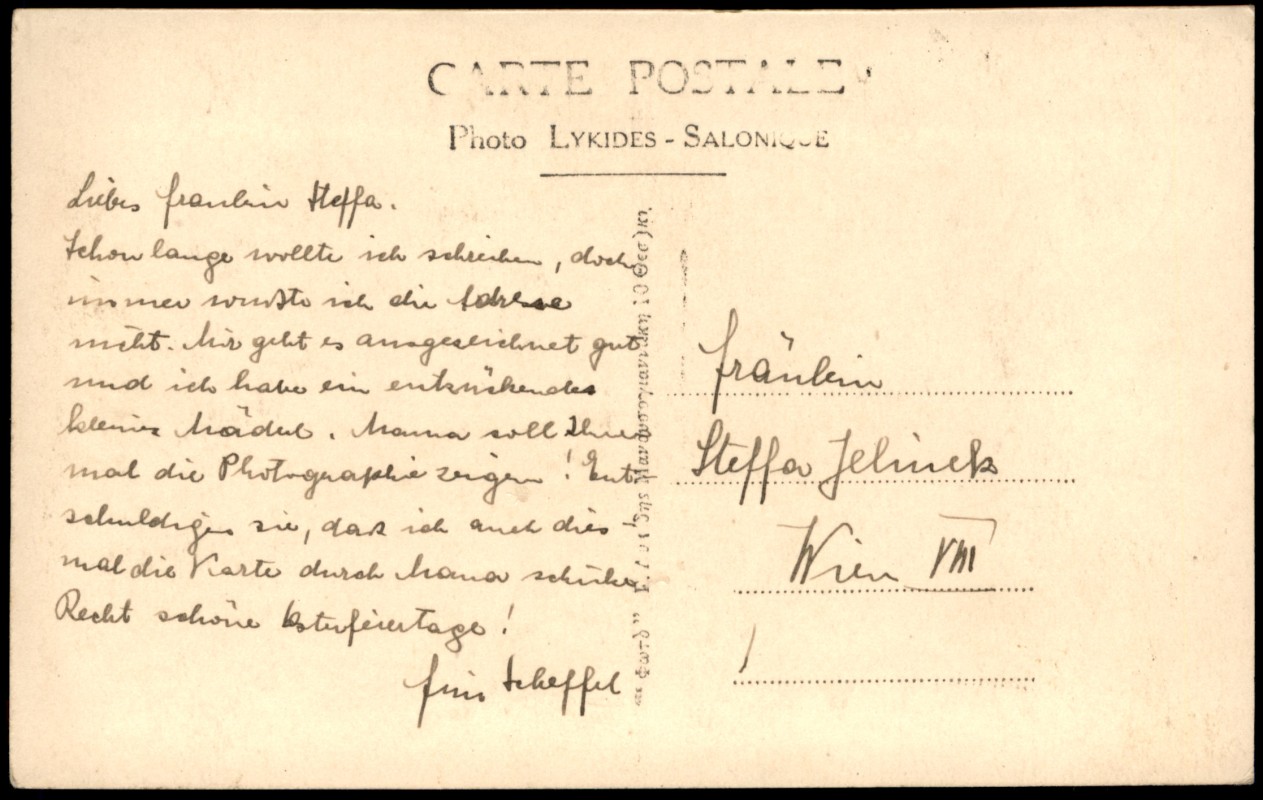 CARTE POSTALE
Photo LYKIDES - SALONIQUE
Liebes Fräulein Steffa.
Schon lange wollte ich schreiben, doch
immer wusste ich die Adresse
nicht. Mir geht es ausgezeichnet gut
und ich habe ein entzückendes
kleines Mädel. Mama soll Ihnen
mal die Photographie zeigen! Ent
schuldigen sie, dass ich auch dies
mal die Karte durch Mama schicke
Recht schöne Osterfeiertage!
Scheffel
Fräulein
Steffa Jelinek
Wien VIII